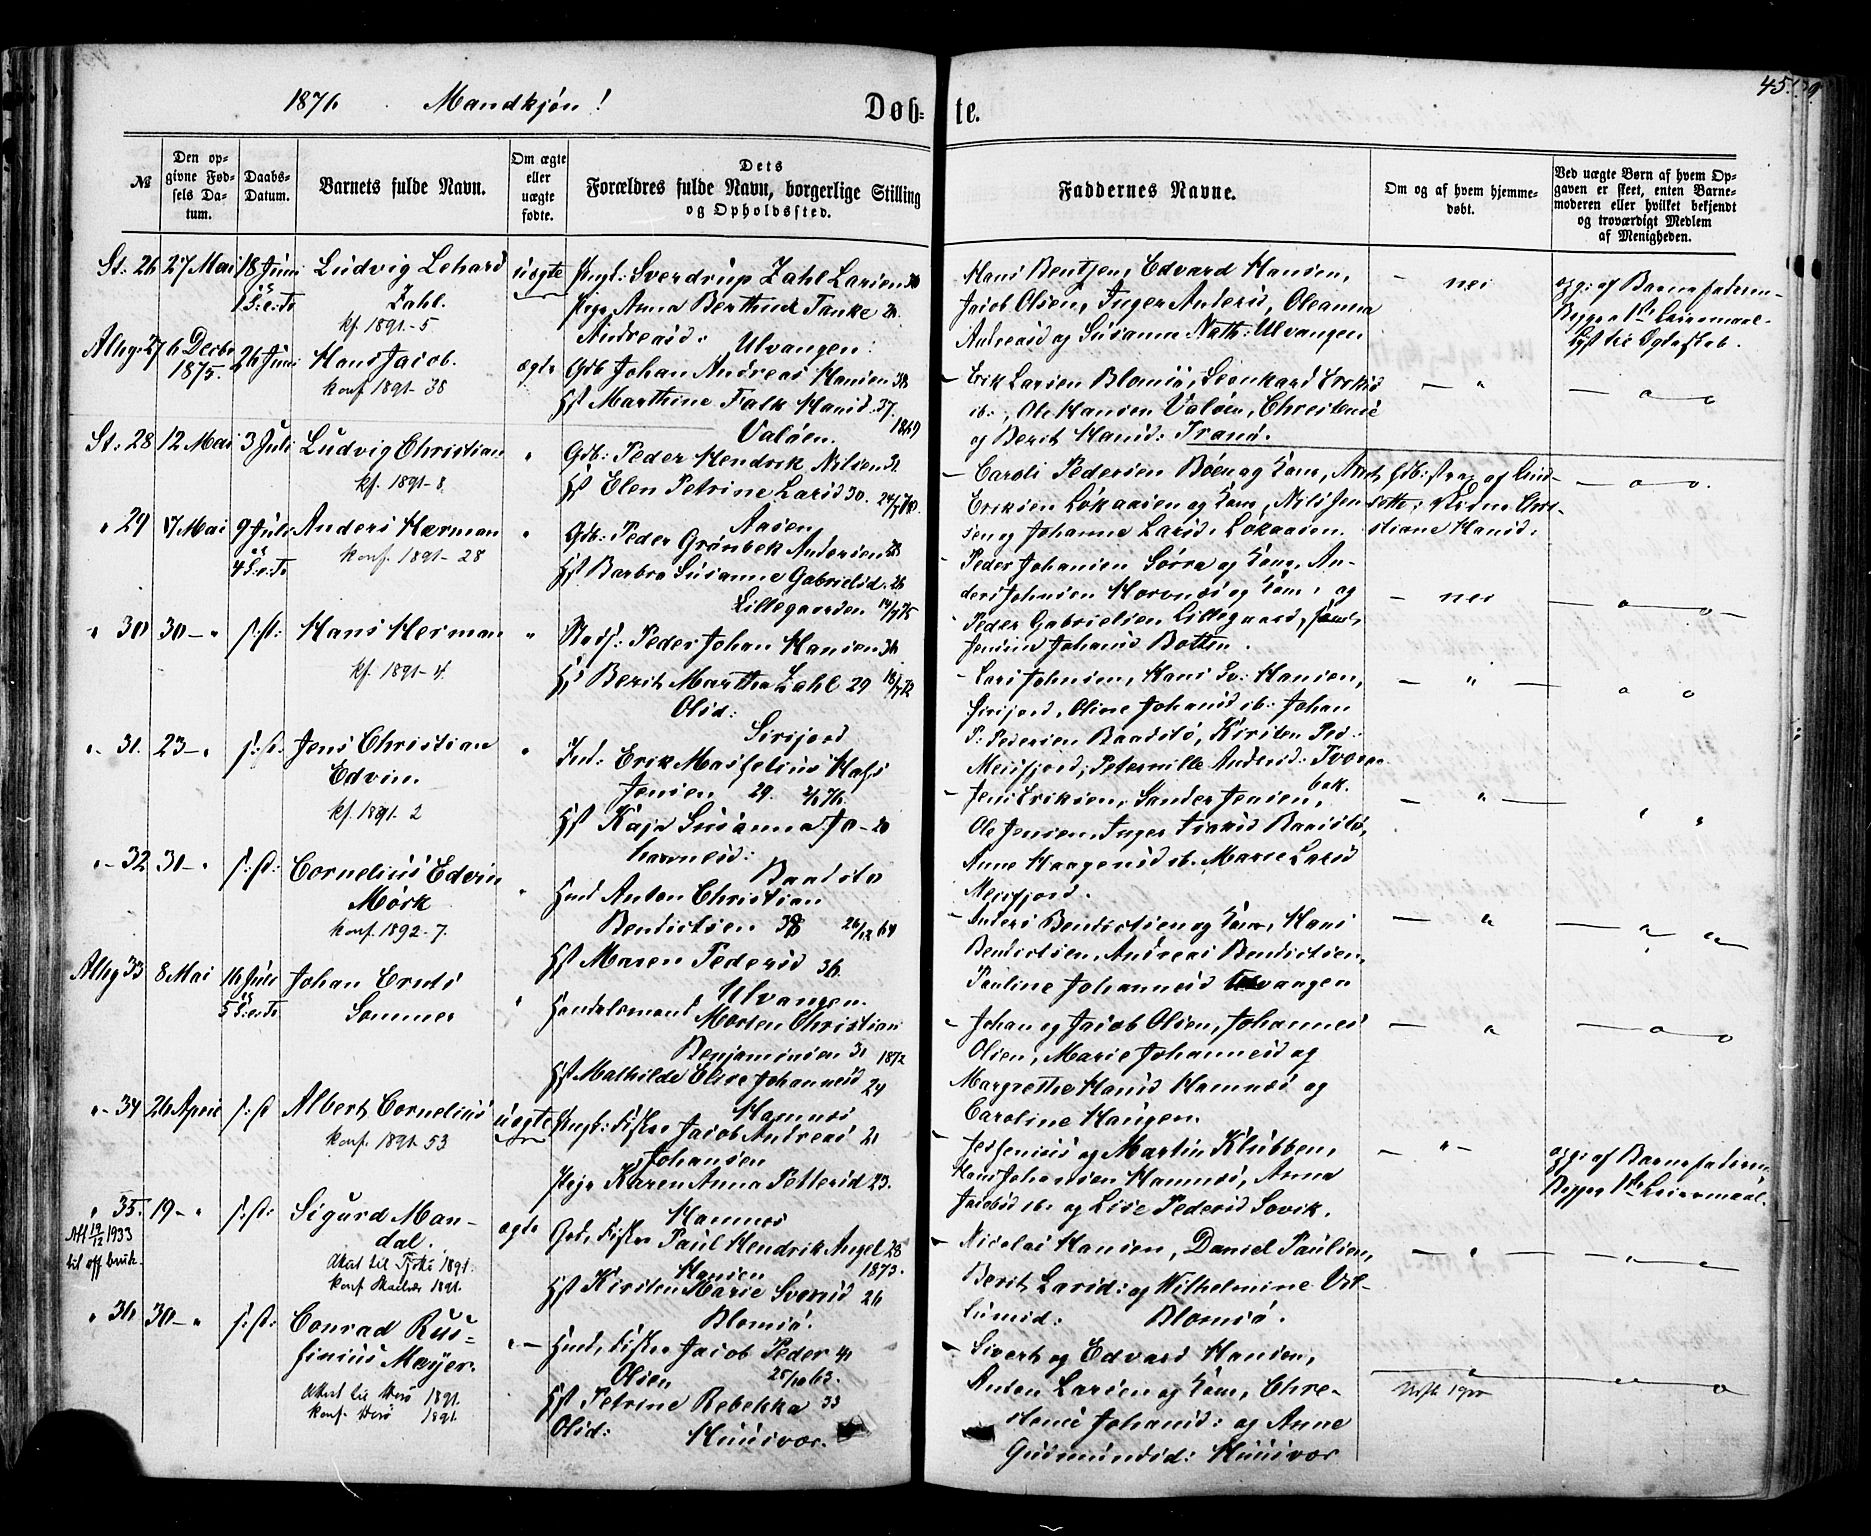 1876. Mandkjøn!
Døb-te.
45.
№
Den op-
givne Fød-
sels Da-
tum.
Daabs-
Datum.
Barnets fulde Navn.
Om ægte
eller
uægte
fødte.
Dets
Forældres fulde Navn, borgerlige Stilling
og Opholdssted.
Faddernes Navne.
Om og af hvem hjemme-
døbt.
Ved uægte Børn af hvem Op-
gaven er skeet, enten Barne-
moderen eller hvilket bekjendt
og troværdigt Medlem
af Menigheden.
St: 26 27 Mai 18 Juni Ludvig Lehard Zahl. kf. 1891-5
uægte Ungk: Sverdrup Zahl Larsen
Pige Anna Berthine Tanke
Andreasd: Ulvangen.
Hans Bentsen, Edvard Hansen,
Jacob Olsen, Inger Andersd, Oleanna
Andreasd og Susanna Nath: Ulvangen
nei
opg: af Barnefaderen
Begges 1ste Leiermaal.
Alhg: 27 6 Decbr 1875. 26 Juni Hans Jacob. konf 1891-38
ægte Gdb Johan Andreas Hansen 38
Hst Marthine Falk Hansd. 37. 1869
Valøen.
Erik Larsen Blomsø, Leonhard Eriksen
ib:, Ole Hansen Valøen, Christense
og Berit Hansd: Tranø.
St: 28 12 Mai 3 Juli Ludvig Christian kf. 1891-8
Gdb: Peder Hendrik Nilsen
Hst Elen Petrine Larsd 30.
Aasen
Caroli Pedersen Bøen og Kone,
Eriksen Løkaasen og Kone, Nils Jen-
sen og Johanna Larsd. Løkaasen.
stiane Hansd:
" 29 17 Mai 9 Juli 4 S: e: Tr Anders Hærman konf. 1891-28
Gdb: Peder Grønbek Andersen
Hst Barbra Susanne Gabrielsd. 26
Lillegaarden
Peder Johansen Sørra og Kone, An-
ders Johnsen Horvnæs og Kone, og
Peder Gabrielsen Lillegaard,
Jensine Johansd Botten.
nei
" 30 30 - " s: st: Hans Herman kf. 1891-4.
Peder Johan Hansen 36
Hst Berit Martha Zahl 29
Olsd: Sørfjord
Lars Johnsen, Hans Hansen,
Sørfjord, Oline Johansd ib: Johan
P: Pedersen Baadstø, Kirsten Ped:
Meisfjord, Peternille Andersd: Tveren
bak.
" 31. 23 - " s: st: Jens Christian Edvin. kf. 1891-2
Ind: Erik
Jensen 29. 2/7 76.
Hst Kaja Susanna Jo-
hannesd: Baadstø
Jens Eriksen, Sander Jensen,
Ole Jensen, Inger Baadstø,
Anne Haagensd ib: Marie Larsd
Meisfjord.
" 32 30 - " s: st: Cornelius Edvin Mørk konf. 1892-7.
Hmd Anton Christian
Bendictsen 38
Hst Maren Pedersd 36.
Ulvangen.
Anders Bendictsen og Kone, Hans
Bendictsen, Andreas Bendictsen,
Pauline Johannesd Ulvangen
Alhg 33 8 Mai 16 Juli 5 S: e: Tr Johan Ernts Sommer
Handelsmand Morten Christian
Benjaminsen 31 1872
Hst Mathilde Elise Johannesd 24
Hamnæs
Johan og Jacob Olsen, Johannes
Olsen, Marie Johannesd og
Margrethe Hansd Hamnæs og
Caroline Haugen.
" 34 26 April s: st Albert Cornelius konf. 1891. 53
uægte Ungk: Fisker Jacob Andreas 21
Johansen
Pige Karen Anna Pettersd 23.
Hamnæs
og Martin Klubben,
Hans Johansen Hamnæs, Anna
Jacobsd ib: og Lise Pedersd Sovik.
opg: af Barnefaderen
Begges 1ste Leiermaal.
" 35. 19 - " s: st: Sigurd Man-
dal.
Att 19/12 1933
til off bruk.
Attest til Tjøtta 1891.
konf 1891.
ægte Gdb, Fisker Paul Hendrik Angel 28
Hansen 1873.
Hst Kirsten Marie Svensd 26
Blomsø.
Nicolai Hansen, Daniel Paulsen,
Berit Larsd: og Wilhelmine Vil-
lumsd: Blomsø.
" 36 30 - " s: st: Conrad Rus-
sinius Mæyer.
Attest til Herø 1891.
konf. Herø 1891.
Hmd, Fisker Jacob Peder 41
Olsen 25/10 63.
Hst Petrine Rebekka 33
Olsd: Huusvær.
Sivert og Edvard Hansen,
Anton Larsen og Kone, Chre-
stense Johansd: og Anne
Gudmundsd: Huusvær